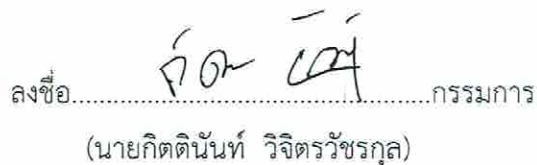 ลงชื่อ....................................................กรรมการ
(นายกิตตินันท์ วิจิตรวัชรกุล)